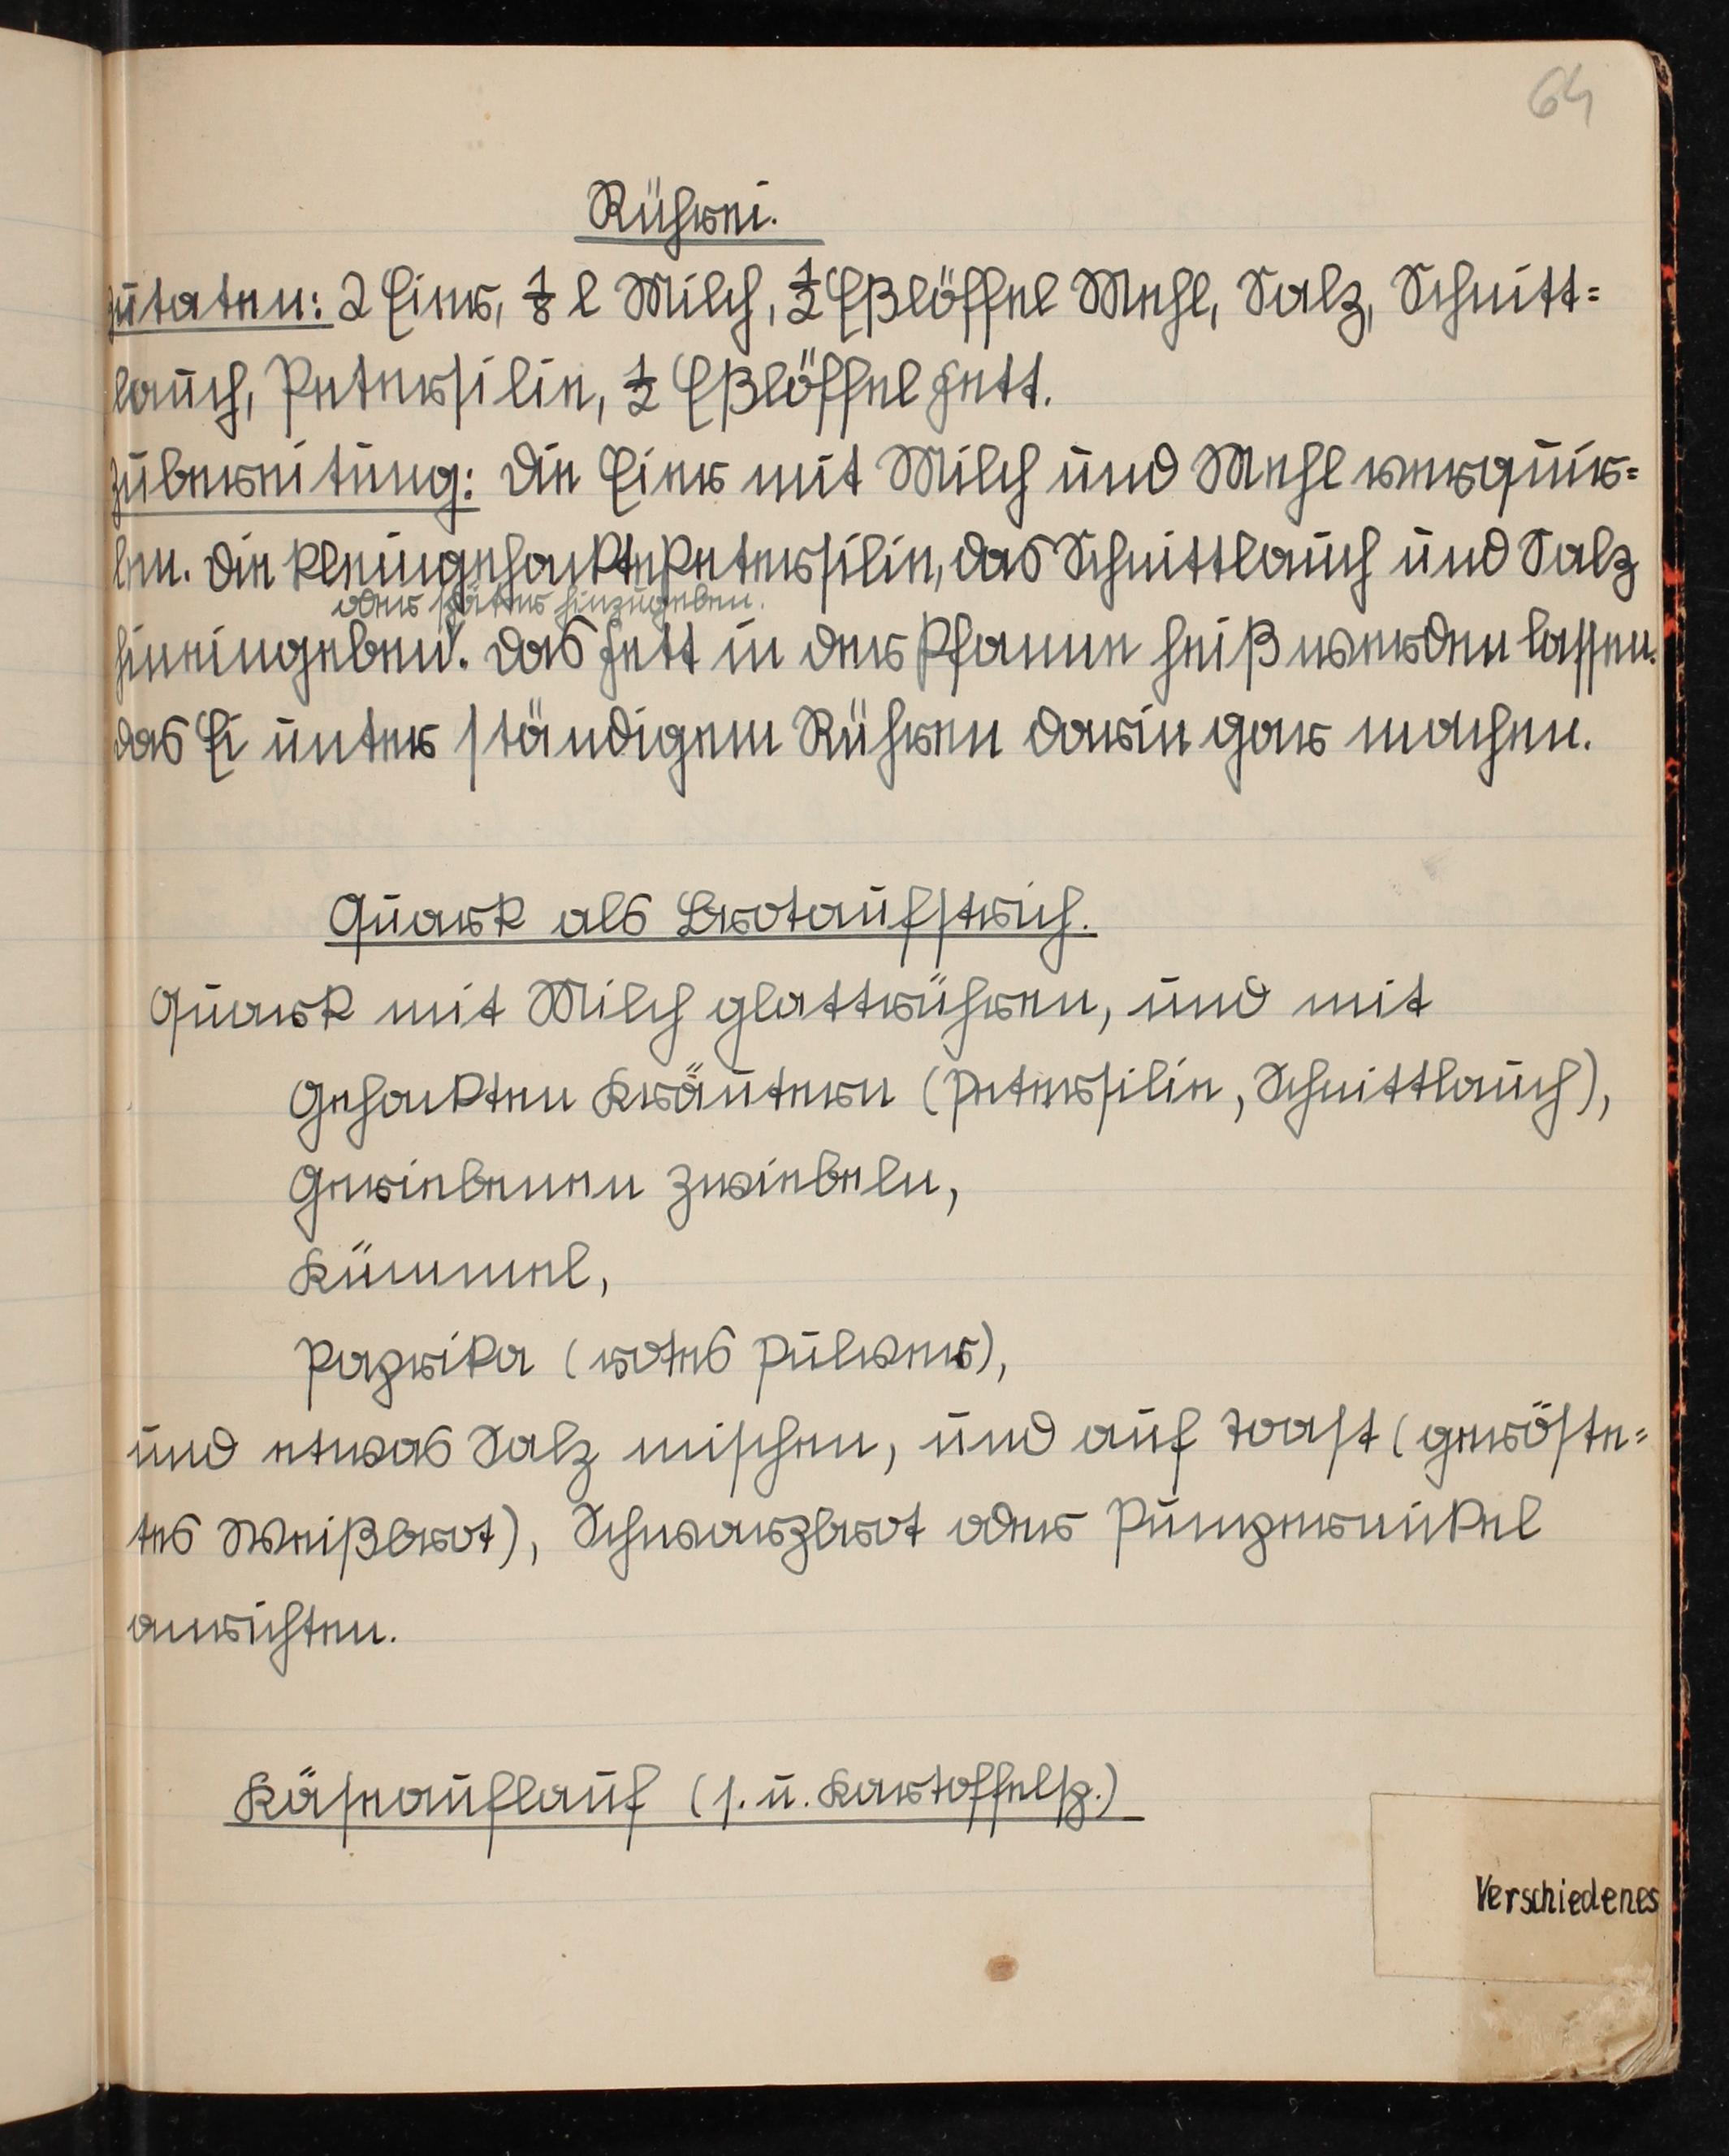 64
Rührei.
Zutaten: 2 Eier, 1/8 l Milch, 1/2 Eßlöffel Mehl, Salz, Schnitt=
lauch, Petersilie, 1/2 Eßlöffel Fett.
Zubereitung: Die Eier mit Milch und Mehl verquir=
len. Die kleingehackte Petersilie, das Schnittlauch und Salz
oder später hinzugeben.
hineingeben. Das Fett in der Pfanne heiß werden lassen.
das Ei unter ständigem Rühren darin gar machen.
Quark als Brotaufstrich.
Quark mit Milch glattrühren, und mit
gehackten Kräutern (Petersilie, Schnittlauch),
Geriebenen Zwiebeln,
Kümmel,
Paprika (rotes Pulver),
und etwas Salz mischen, und auf Toast (geröste=
tes Weißbrot), Schwarzbrot oder Pumpernickel
anrichten.
Käseauflauf (s. u. Kartoffelsp.)
Verschiedenes